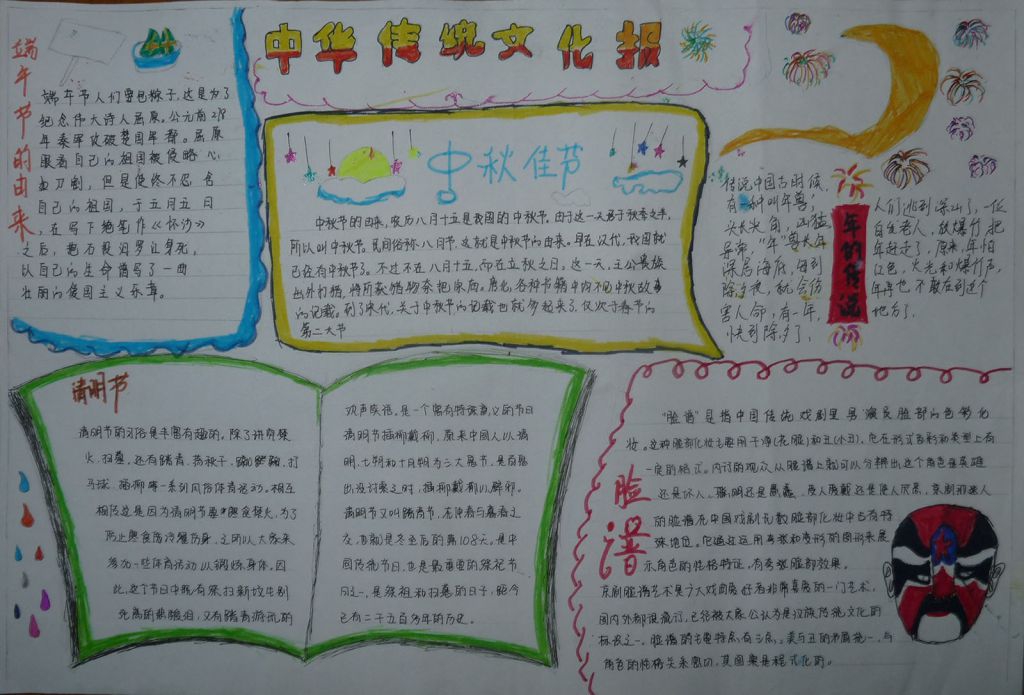 中华传统文化报
端午节的由来
端午节人们要包粽子,这是为了
纪念伟大诗人屈原。公元前278
年秦军攻破楚国京都。屈原
眼看自己的祖国被侵略,心
如刀割,但是使终不忍舍
自己的祖国,于五月五日
在写下绝笔作《怀沙》
之后,抱石投汨罗江身死,
以自己的生命谱写了一曲
壮丽的爱国主义乐章。
中秋佳节
中秋节的由来,农历八月十五是我国的中秋节,由于这一天居于秋季之半,
所以叫中秋节,民间俗称八月节,这就是中秋节的由来。早在汉代,我国就
已经有中秋节了。不过不在八月十五,而在立秋之日。这一天,王公贵族
出外打猎,将所获猎物祭把家庙。唐代,各种书籍中内不见中秋故事
的记载。到了宋代,关于中秋节的记载也就多起来了,仅次于春节的
第二大节
年的传说
传说中国古时候,
有一种叫年兽,
头长尖角,凶猛
异常,“年”兽长年
深居海底,每到
除夕夜,就会伤
害人命,有一年,
快到除夕了,
人们逃到深山了,一位
白发老人,放爆竹把
年赶走了,原来,年怕
红色,火光和爆竹声,
年再也不敢在到这个
地方了.
清明节
清明节的习俗是丰富有趣的。除了讲究禁
火、扫墓,还有踏青、荡秋千、蹴鞠、打
马球、插柳等一系列风俗体育活动。相
传这是因为清明节要寒食禁火,为了
防止寒食冷餐伤身,之所以大家来
参加一些体育活动,以锻炼身体。因
此,这个节日中既有祭扫新坟生别
死离的悲酸泪,又有踏青游玩的
欢声笑语,是一个富有特殊意义的节日
清明节插柳戴柳,原来中国人以清
明、七朔和十月朔为三大鬼节,是百鬼
出没讨索之时,插柳戴柳以辟邪。
清明节又叫踏青节,在仲春与暮春之
交,也就是冬至后的第108天。是中
国传统节日,也是最重要的祭祀节
日之一,是祭祖和扫墓的日子,距今
已有二千五百多年的历史。
脸谱
“脸谱”是指中国传统戏剧里男演员脸部的色彩化
妆。这种脸部化妆主要用于净(花脸)和丑(小丑),它在形式色彩和类型上有
一定的格式。内行的观众从脸谱上就可以分辨出这个角色是英雄
还是坏人,聪明还是愚蠢,受人爱戴还是使人厌恶,京剧那迷人
的脸谱在中国戏剧无数脸部化妆中占有特
殊地位。它通过运用夸张和变形的图形来展
示角色的性格特征,有夸张脸部效果。
京剧脸谱艺术是广大戏曲爱好者非常喜爱的一门艺术,
国内外都很流行,已经被大家公认为是汉族传统文化的
标识之一。脸谱的主要特点有三点:美与丑的矛盾统一,与
角色的性格关系密切,其图案是程式化的。